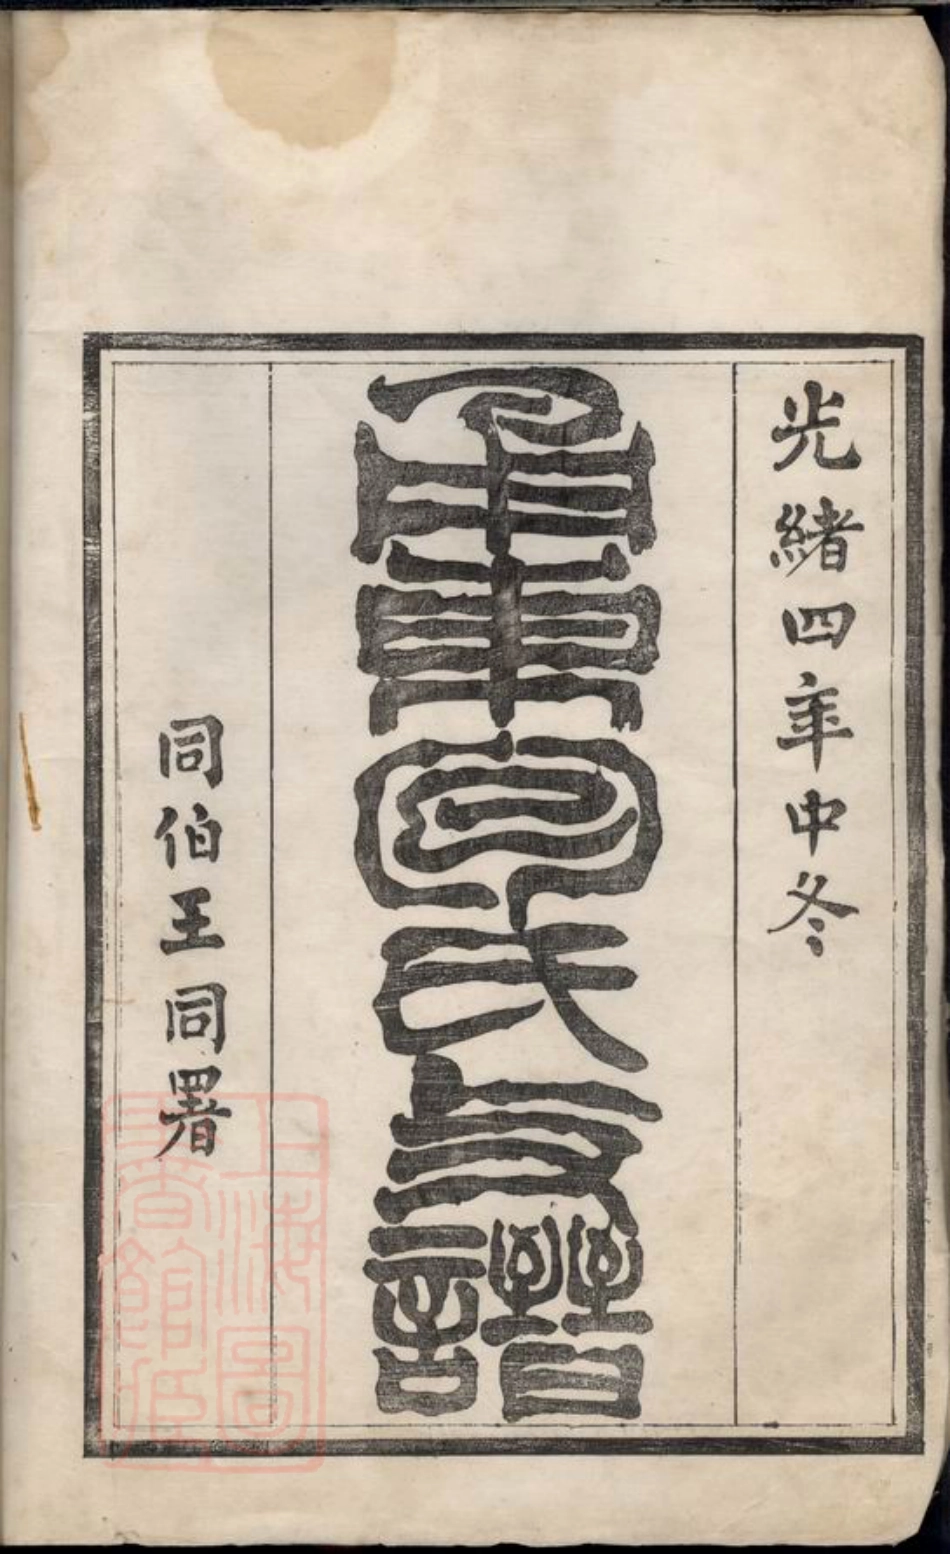 光緒四年中冬
甬東包氏支譜
同伯王同署
上海圖
書館藏